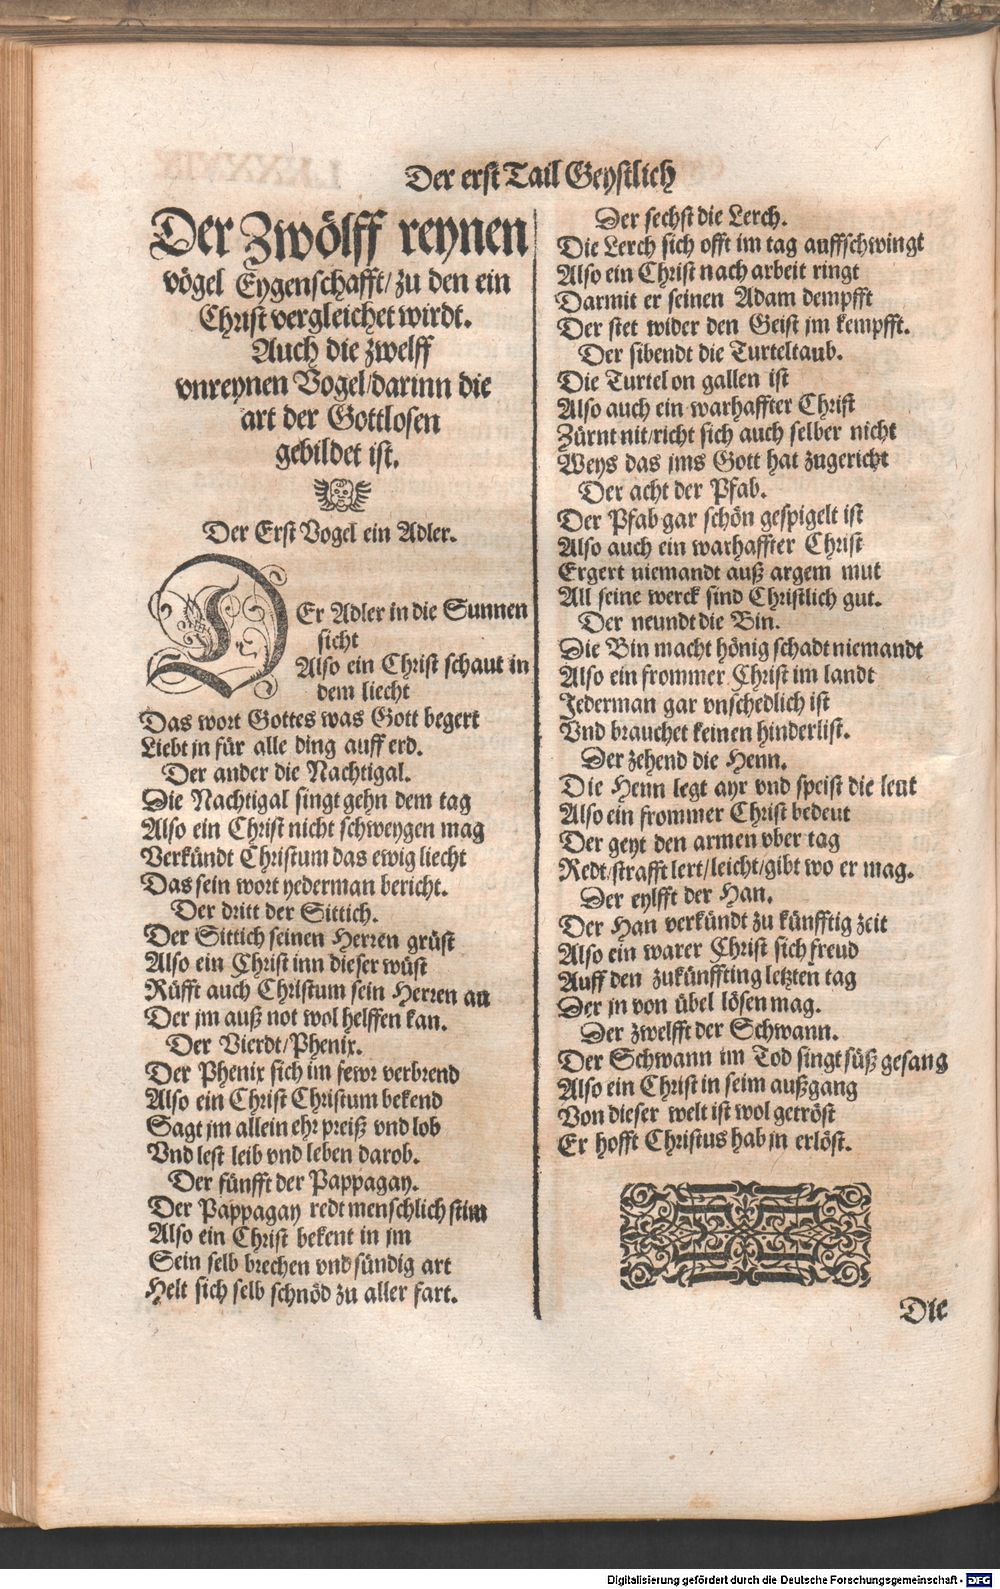 Der erst Tail Geystlich
Der Zwölff reynen
vögel Eygenschafft/ zu den ein
Christ vergleichet wirdt.
Auch die zwelff
vnreynen Vogel/darinn die
art der Gottlosen
gebildet ist.
Der Erst Vogel ein Adler.
DEr Adler in die Sunnen
sicht
Also ein Christ schaut in
dem liecht
Das wort Gottes was Gott begert
Liebt in für alle ding auff erd.
Der ander die Nachtigal.
Die Nachtigal singt gehn dem tag
Also ein Christ nicht schweygen mag
Verkündt Christum das ewig liecht
Das sein wort yederman bericht.
Der dritt der Sittich.
Der Sittich seinen Herren grüst
Also ein Christ inn dieser wüst
Rüfft auch Christum sein Herren an
Der jm auß not wol helffen kan.
Der Vierdt/Phenix.
Der Phenix sich im fewr verbrend
Also ein Christ Christum bekend
Sagt jm allein ehr preiß vnd lob
Vnd lest leib vnd leben darob.
Der fünfft der Pappagay.
Der Pappagay redt menschlich stim
Also ein Christ bekent in jm
Sein selb brechen vnd sündig art
Helt sich selb schnöd zu aller fart.
Der sechst die Lerch.
Die Lerch sich offt im tag auffschwingt
Also ein Christ nach arbeit ringt
Darmit er seinen Adam dempfft
Der stet wider den Geist jm kempfft.
Der sibendt die Turteltaub.
Die Turtel on gallen ist
Also auch ein warhaffter Christ
Zürnt nit/richt sich auch selber nicht
Weys das jms Gott hat zugericht
Der acht der Pfab.
Der Pfab gar schön gespigelt ist
Also auch ein warhaffter Christ
Ergert niemandt auß argem mut
All seine werck sind Christlich gut.
Der neundt die Bin.
Die Bin macht hönig schadt niemandt
Also ein frommer Christ im landt
Jederman gar vnschedlich ist
Vnd brauchet keinen hinderlist.
Der zehend die Henn.
Die Henn legt ayr vnd speist die leut
Also ein frommer Christ bedeut
Der geyt den armen vber tag
Redt/strafft lert/leicht/gibt wo er mag.
Der eylfft der Han.
Der Han verkündt zu künfftig zeit
Also ein warer Christ sich freud
Auff den zukünffting letzten tag
Der jn von übel lösen mag.
Der zwelfft der Schwann.
Der Schwann im Tod singt süß gesang
Also ein Christ in seim außgang
Von dieser welt ist wol getröst
Er hofft Christus hab jn erlöst.
Die
Digitalisierung gefördert durch die Deutsche Forschungsgemeinschaft - DFG